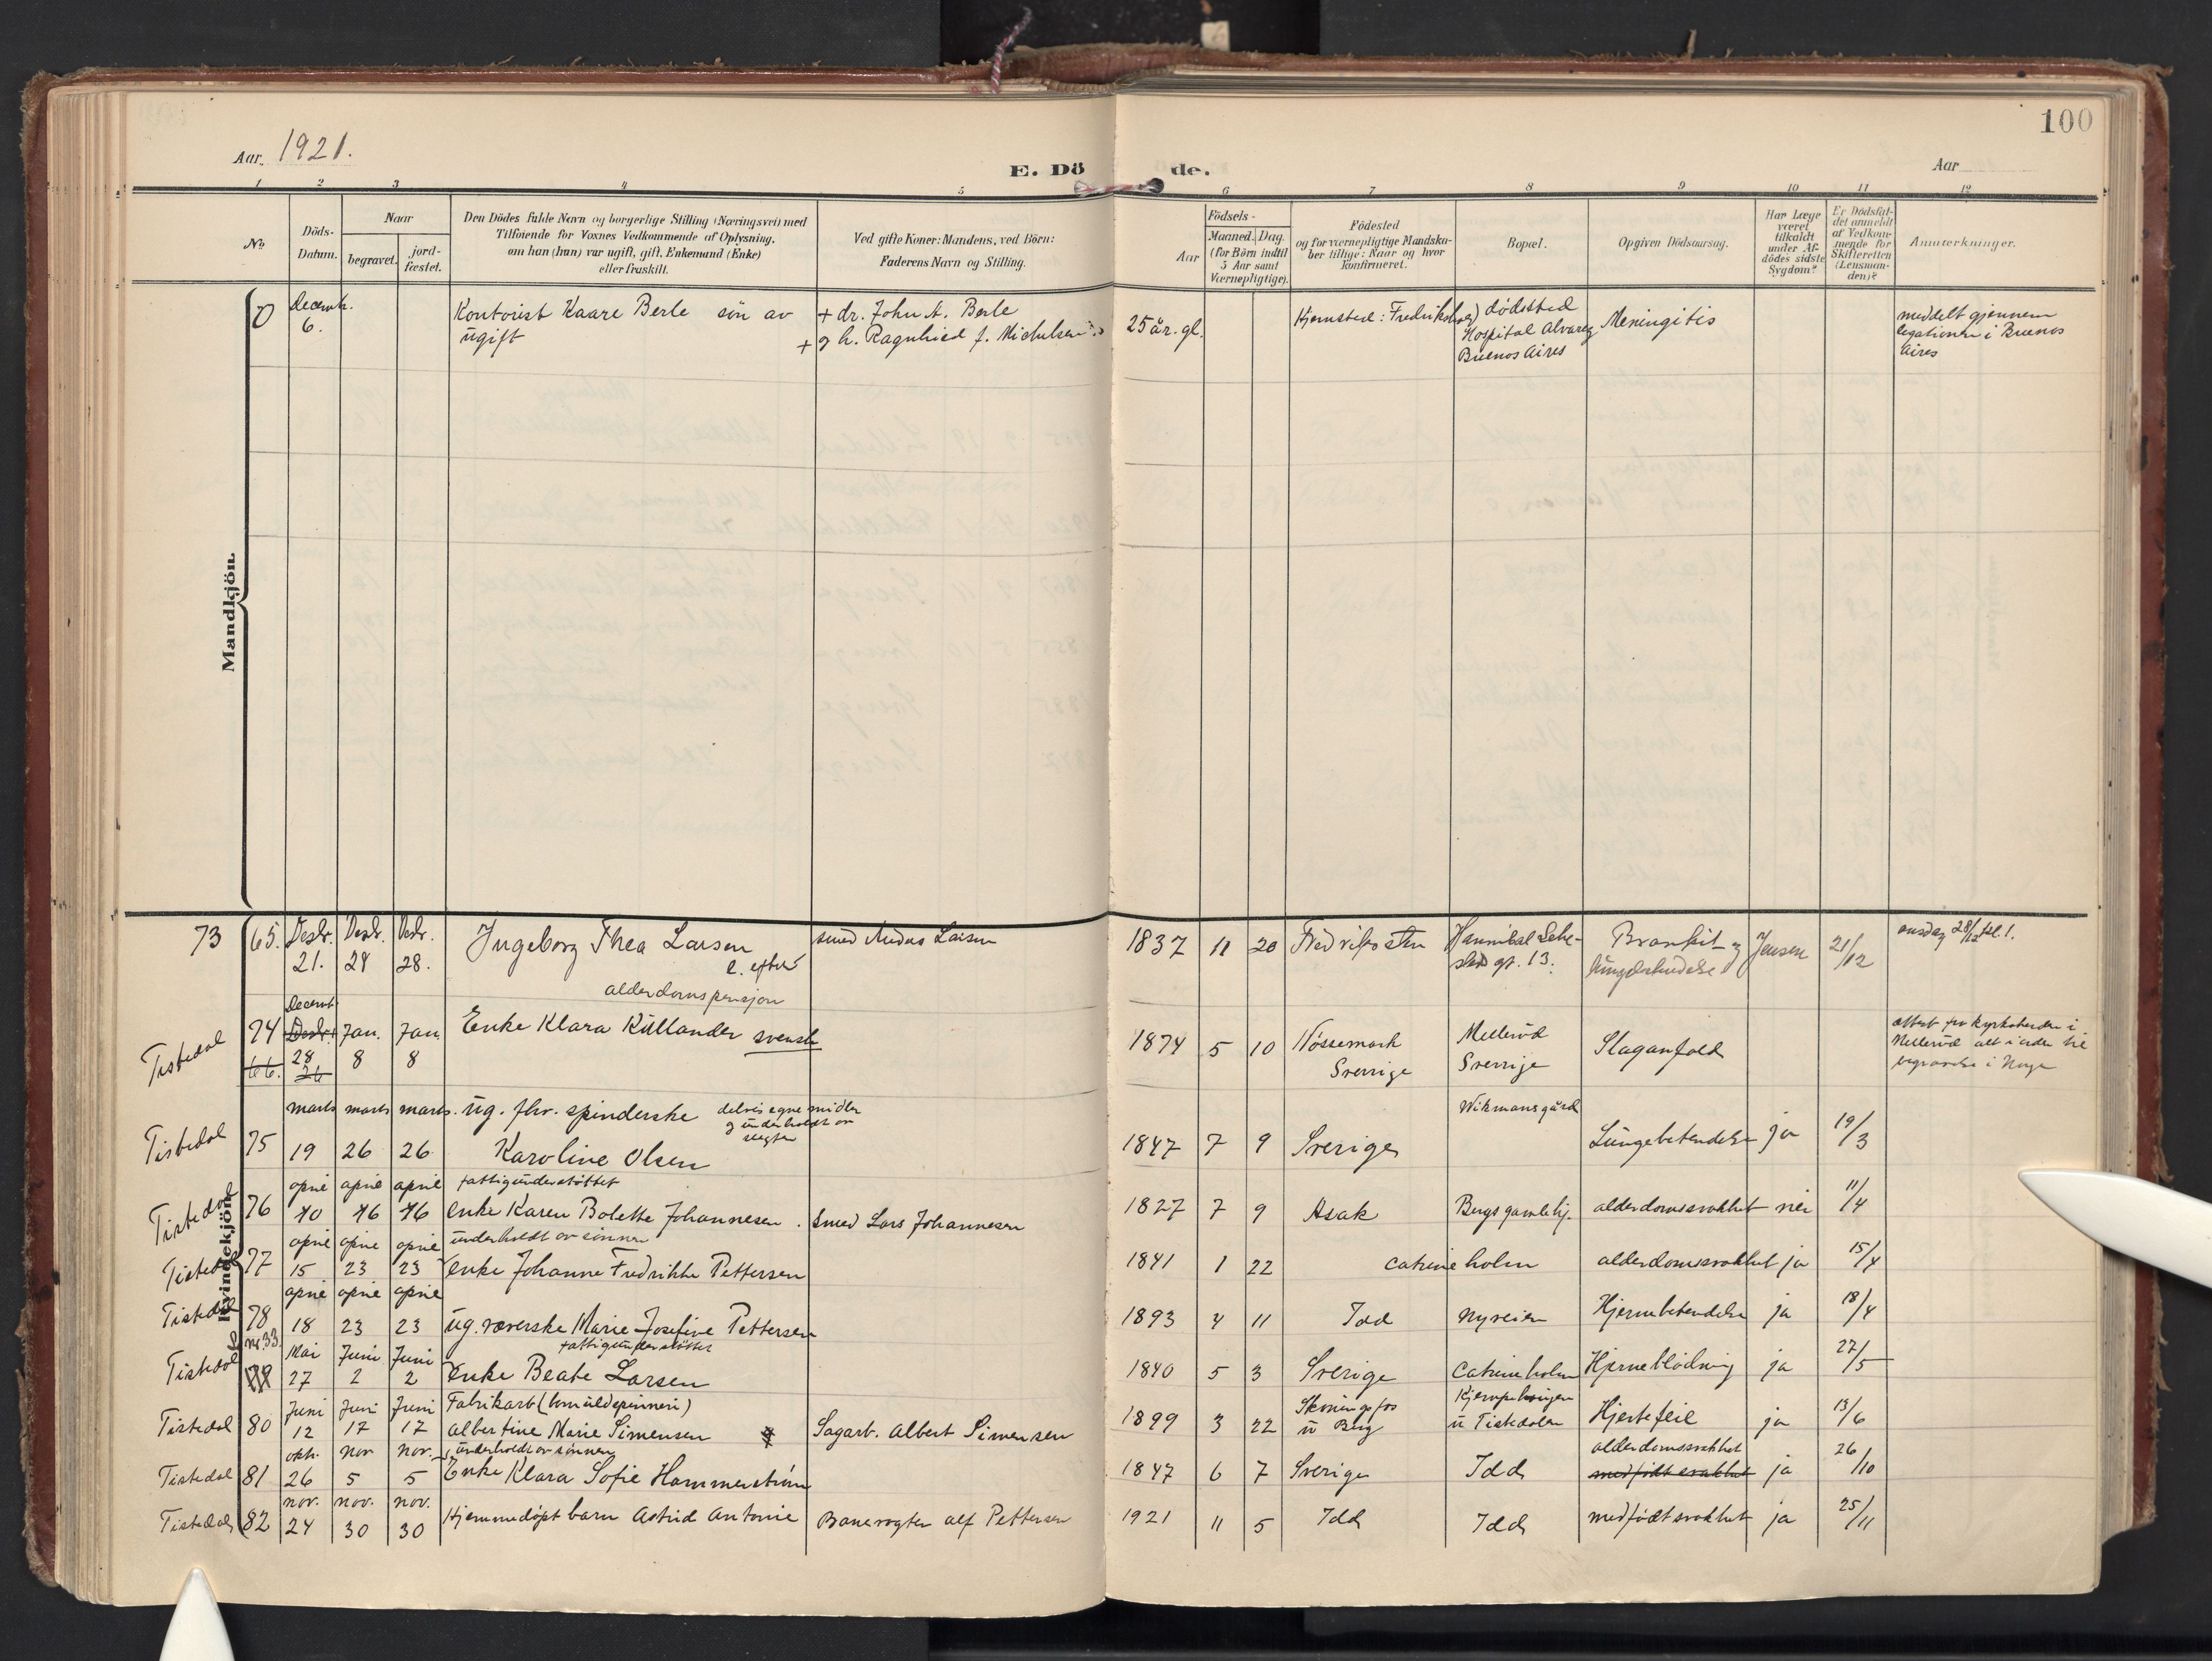 100
Aar. 1921.
E. Dö de.
Aar
1 2 3 4 5 6 7 8 9 10 11 12
No.
Döds-Datum.
Naar
begravet.
jord-fæstet.
Den Dödes fulde Navn og borgerlige Stilling (Næringsvei) med
Tilföiende for Voxnes Vedkommende af Oplysning,
om han (hun) var ugift, gift, Enkemand (Enke)
eller fraskilt.
Ved gifte Koner: Mandens, ved Börn:
Faderens Navn og Stilling.
Födsels-
Aar
Maaned. Dag.
(for Börn indtil
5 Aar samt
Værnepligtige).
Födested
og for værnepligtige Mandska-
ber tillige: Naar og hvor
konfirmeret.
Bopæl.
Opgiven Dödsaarsag.
Har Læge
været
tilkaldt
under Af-
dödes sidste
Sygdom?
Er Dödsfal-
det anmeldt
af Vedkom-
mende for
Skifteretten
(Lensman-
den)?
Anmærkninger.
Mandkjön.
0 Decemb. 6. Kontorist Kaare Berle sön av + dr. John A. Berle 25 år. gl. Hjemsted: Fredrikshald dødssted Meningitis meddelt gjennem
ugift + og h. Ragnhild f. Michelsen Hospital Alvarez legationen i Buenos
Buenos Aires Aires
Kvindekjön.
73 65. Desbr. Desbr. Desbr. Ingeborg Thea Larsen smed Larsen 1837 11 20 Hannibal Sehe- Jensen 21/12 onsdag 28/12 kl. 1.
21. 28 28. e. efter steds gt. 13.
alderdomspensjon
Decemb.
Tistedal 74 Desbr. Jan. Jan. Enke Klara Küllander svensk 1874 5 10 Nössemark Mellerud Slaganfald
66. 28 8 8 Sverrige Sverrige Mellerud
26 begravelse i Norge
marts marts marts. ug. fhv. spinderske delvis egne midler Wikmansgård
og underholdt av
slegten
Tistedal 75 19 26 26 Karoline Olsen 1847 7 9 Sverige Lungebetendelse ja 19/3
april april april fattigunderstöttet
Tistedal 76 10 16 16 enke Karen Bolette Johannesen. Smed Lars Johannesen 1827 7 9 Asak Bergs gamlehj. alderdomssvakhet nei 11/4
april april april underholdt av sönnen
Tistedal 77 15 23 23 enke Johanne Fredrikke Pettersen 1841 1 22 Catrineholm alderdomssvakhet ja 15/4
april april april
Tistedal 78 18 23 23 ug. væverske Marie Josefine Pettersen 1893 4 11 Idd Nyveien Hjernebetendelse ja 18/4
nr. 33 Mai Juni Juni fattigunderstöttet
Tistedal 79 27 2 2 Enke Beate Larsen 1840 5 3 Sverige Catrineholm Hjerneblödning ja 27/5
Juni Juni Juni Fabrikarb. (bomuldspinneri) Skonningsfos
Tistedal 80 12 17 17 Albertine Marie Simensen Sagarb. Albert Simensen 1899 3 22 u Berg u Tistedalen Hjertefeil ja 13/6
okt. nov nov. underholdt av sönnen alderdomssvakhet
Tistedal 81 26 5 5 Enke Klara Sofie Hammerström 1847 6 7 Sverige Idd medfödt svakhet ja 26/10
nov. nov. nov.
Tistedal 82 24 30 30 Hjemmedöpt barn Astrid Antonie Banevogter Alf Pettersen 1921 11 5 Idd Idd medfödt svakhet ja 25/11